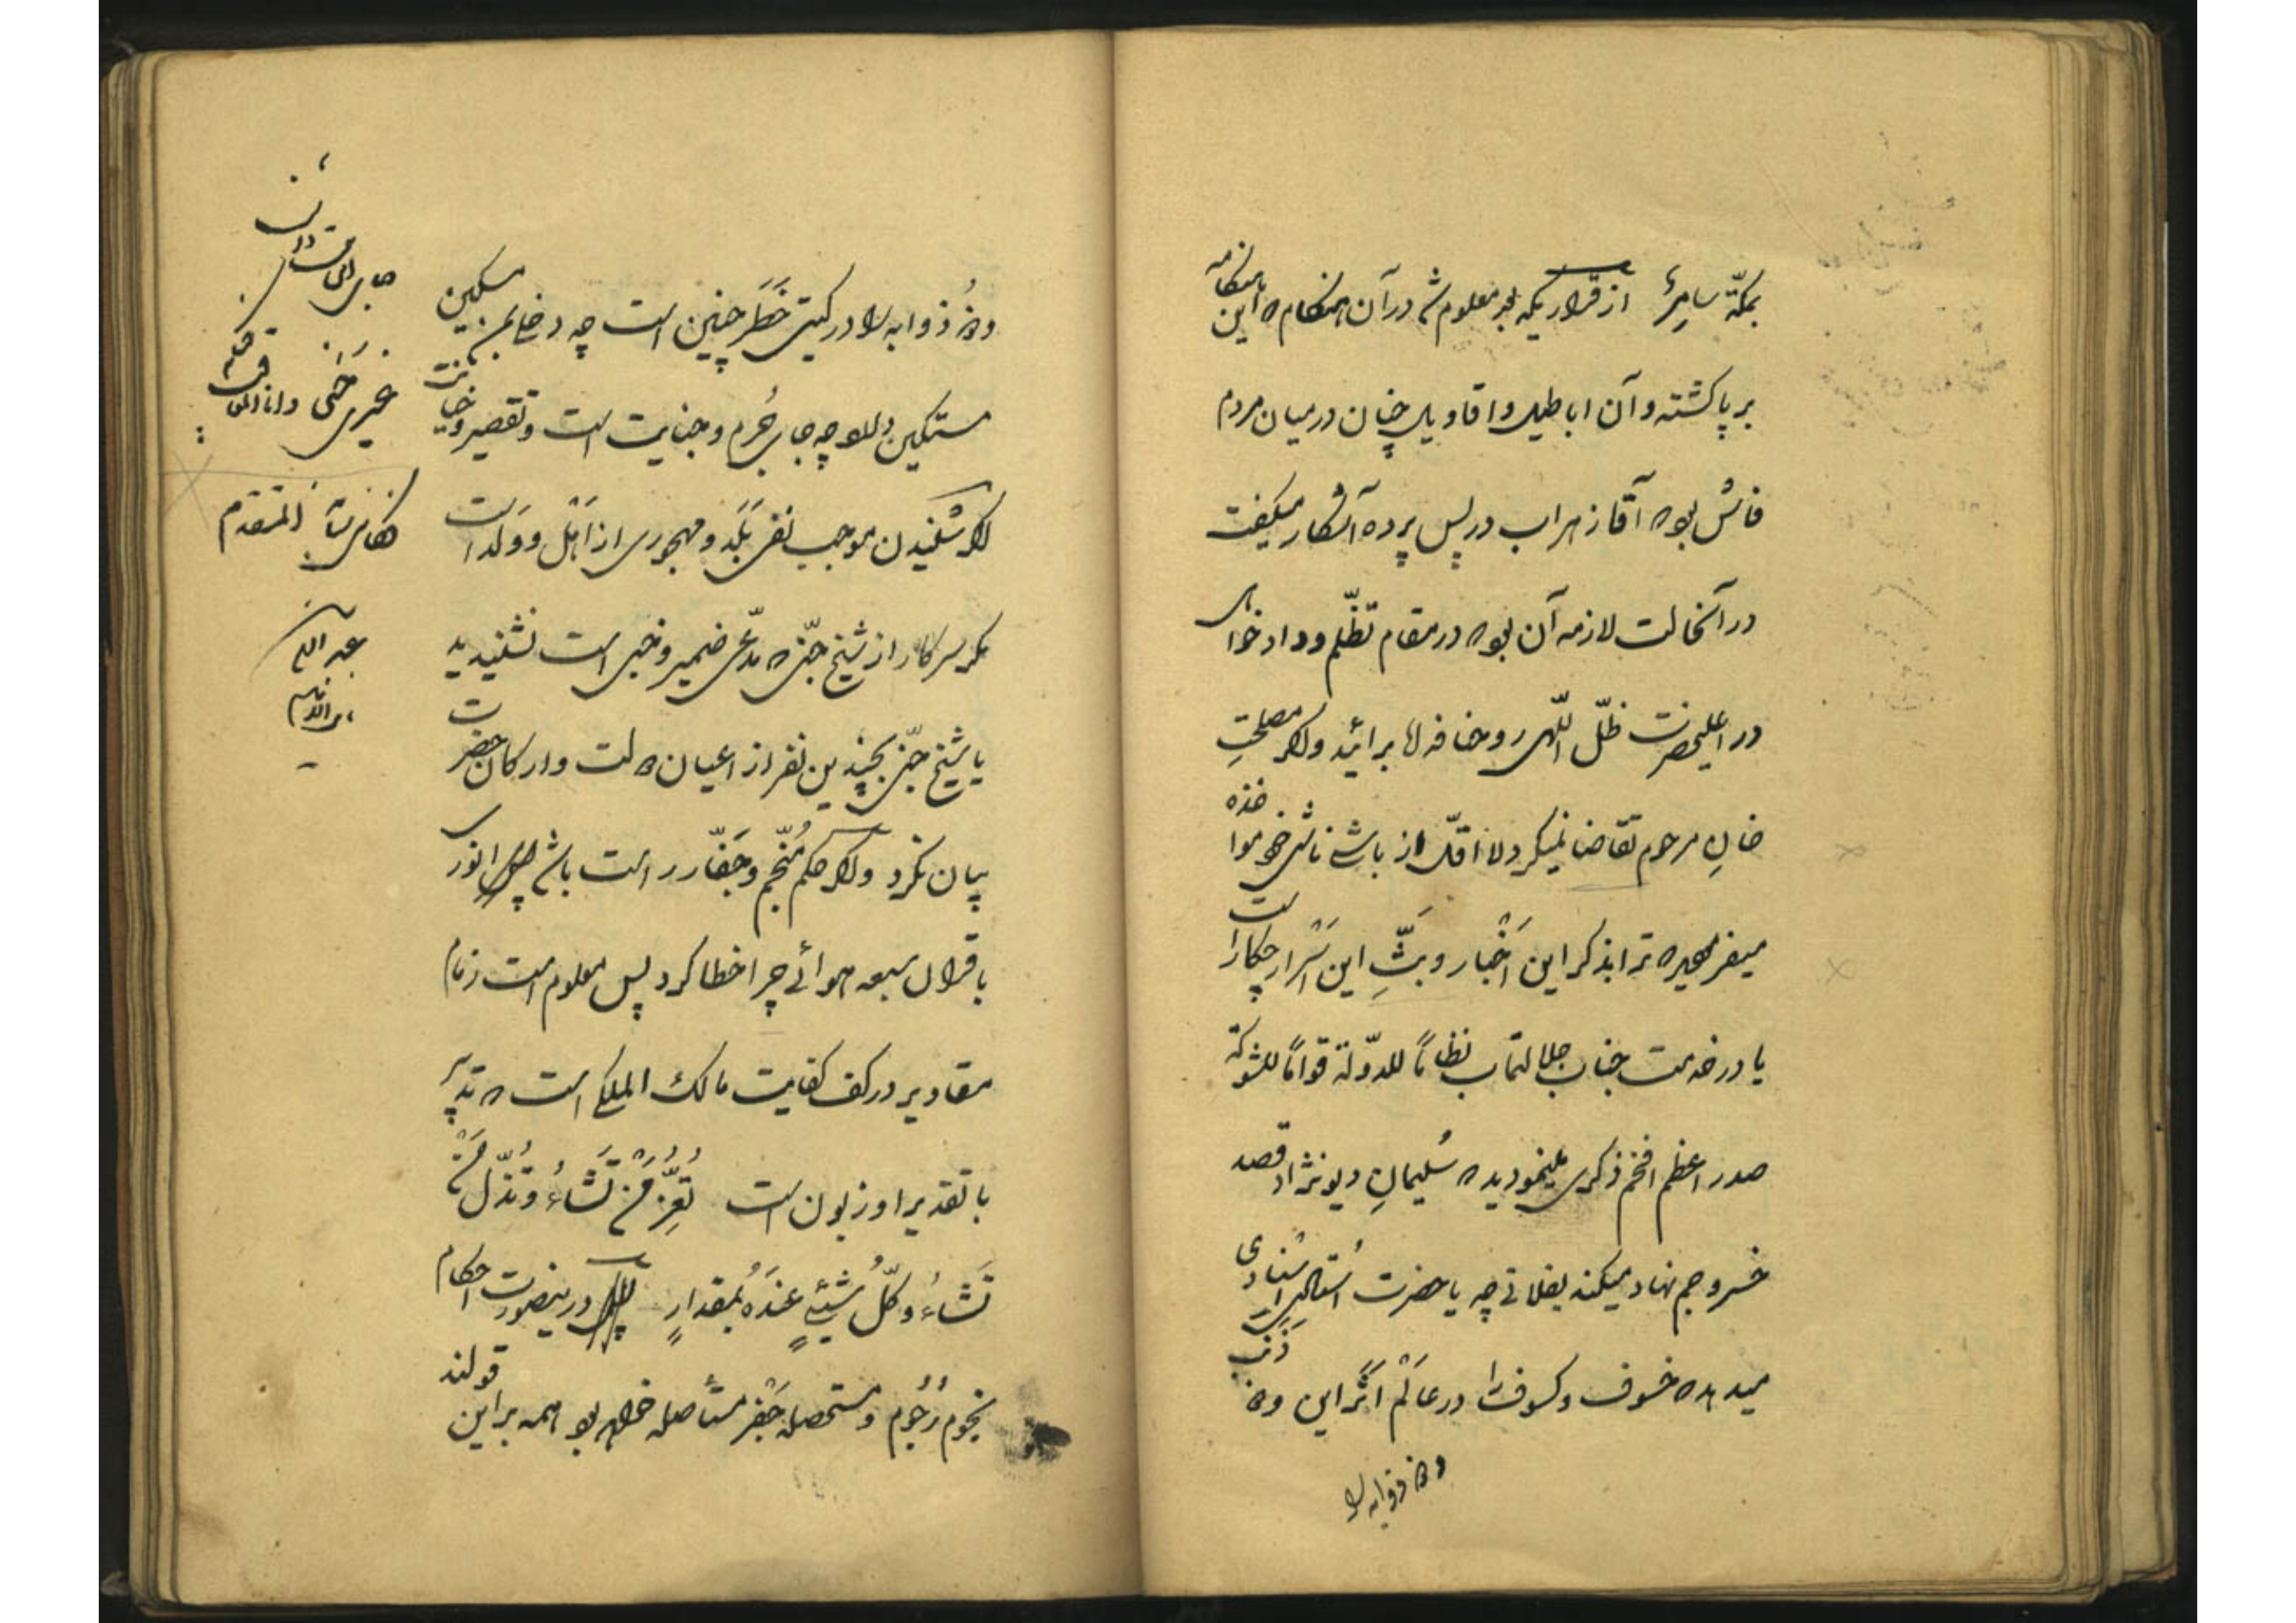 بمکّۀ سامرۀ از قراریکه بعد معلوم شد در آن هنگام که این هنگامه
بر پا گشته و آن اباطیل و اقاویل چنان در میان مردم
فاش بود که آقا ز مهراب در پس پرده آشکار میگفت
در آنحالت لازمه آن بود که در مقام تظلّم و دادخواهی
در اعلیحضرت ظلّ اللّهی روحنا فداه برائید و اگر مصلحتِ
خانِ مرحوم تقاضا نمیکرد لااقلّ از باشی ناشی خود مواخذه
میفرمودید که ترا بذکر این اَخْبار و بثِّ این اَسْرار چکار است
یا در خدمت جناب جلالتمآب نظاماً للدّولة قواماً للشوکة
صدر اعظم افخم ذکری مینمودید که سُلیمانِ دیونژاد قصد
خسرو جم نهاد میکند بفلانی چه یا حضرت اُستادی اسنادی
میدهد که خسوف و کسوف را در عالَمْ اَثَر این وَ ذَنَب
وَ ذُوابه را
وَ ذُوابه را در گیتی خَطَر چنین است چه دخلی بمن مسکین
مستکین دارد چه جای جُرم و جنایت است و تقصیر و خیانت
اگر شنیدن موجب نفی بَلَد و مهجوری از اَهْل و وَلَد است
مگر سرکار از شیخ جنّی که مدّعی ضمیر و خبی است نشنیدید
یا شیخ جنّی بچندین نفر از اعیان دولت و ارکان حضرت
بیان نکرد و اگر حکم مُنجّم و جَفّار راست باشد پس انوری
با قران سبعه هوائے چرا خطا کرد پس معلوم است زمام
مقادیر در کف کفایت مالک الملکی است که تدبیر
با تقدیر او زبون است تُعِزُّ مَنْ تَشَاءُ وَ تُذِلُّ مَنْ
تَشَاءُ وَ کلُّ شَیْئٍ عِنْدَهُ بِمِقْدارٍ در ینصورت احکام
نجوم رُجُوم و مستحصله جَفْر مستأصله خواهد بود همه بر این قولند